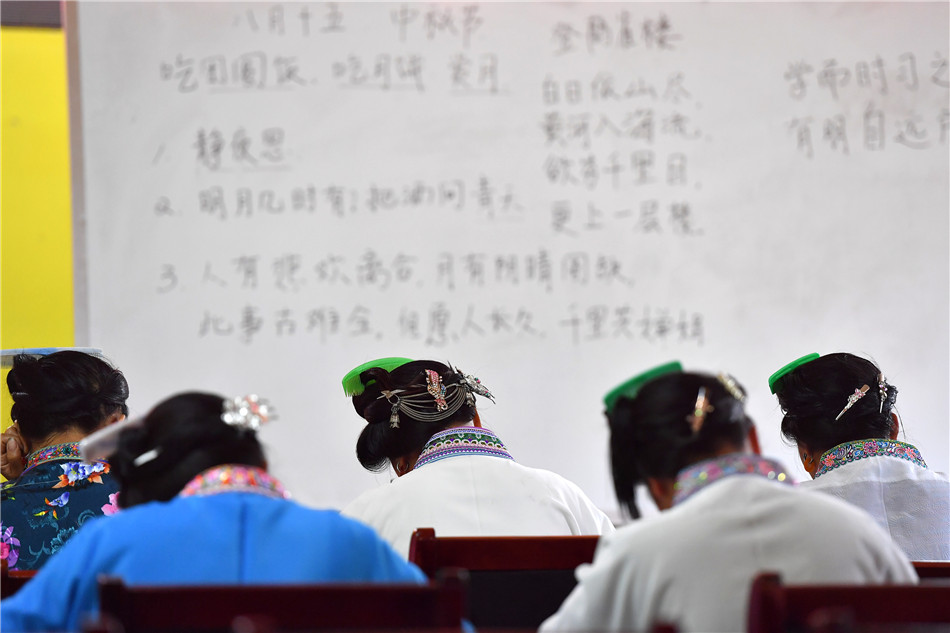 八月十五 中秋节
吃团圆饭、吃月饼 赏月
1. 静夜思
2. 明月几时有:把酒问青天
3. 人有悲欢离合,月有阴晴圆缺
此事古难全,但愿人长久,千里共婵娟
楼
白日依山尽,
黄河入海流,
欲穷千里目,
更上一层楼.
学而时习之
有明自远